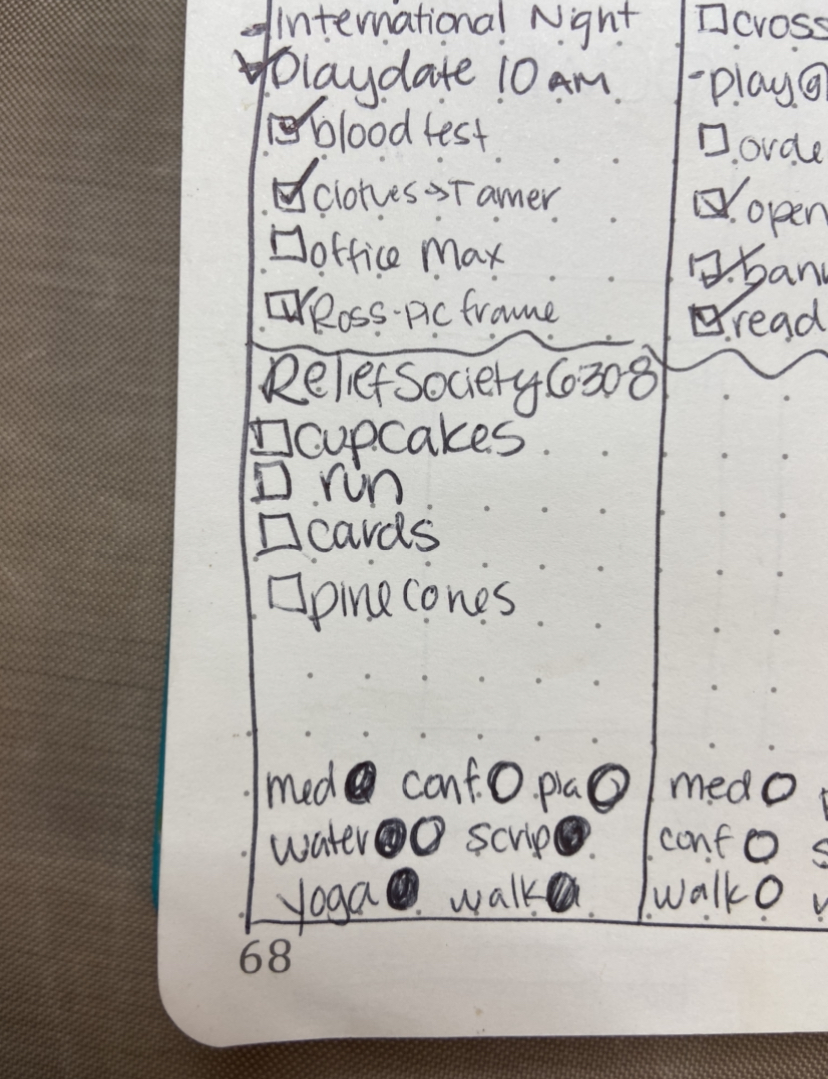 -International Night
Playdate 10 AM
blood test
Clothes→Tamer
office Max
Ross-pic frame
Relief Society 6:30-8
cupcakes
run
cards
pinecones
med conf. pia
water scrip
yoga walk
68
cross
-play@
orde
open
bann
read
med
conf s
walk